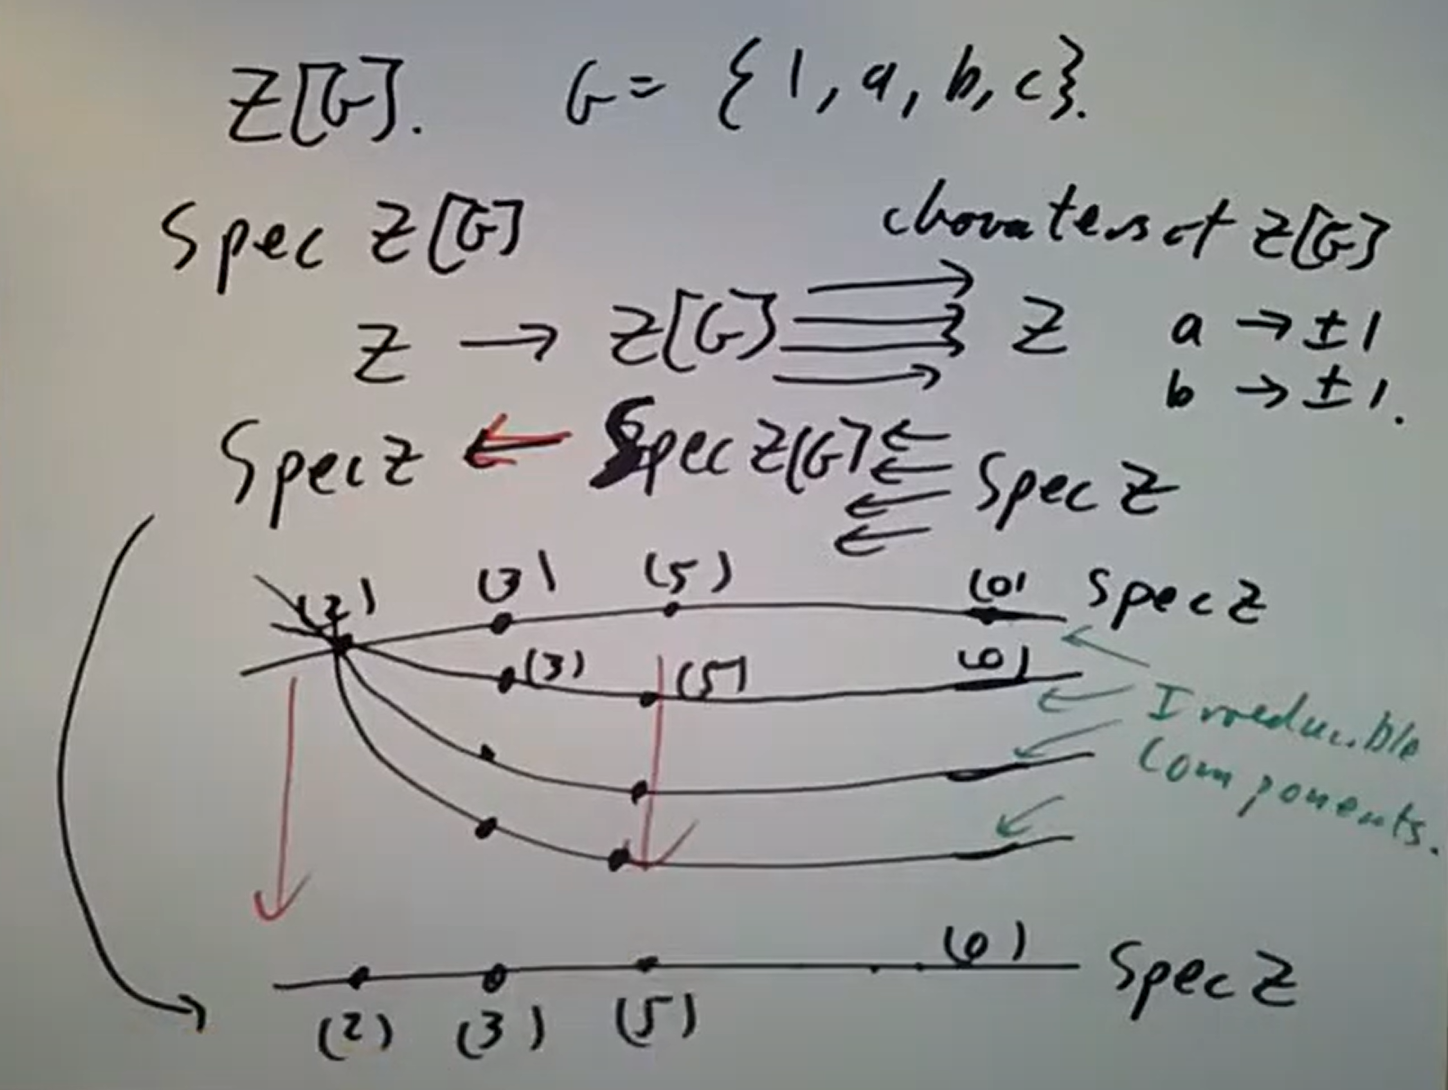 Z[G]. G = {1, a, b, c}.
Spec Z[G]
charaters of Z[G]
Z → Z[G] Z a → ±1
b → ±1.
Spec Z ← Spec Z[G] Spec Z
(2) (3) (5) (0) Spec Z
(3) (5) (0)
Irreducible
Components.
(0) Spec Z
(2) (3) (5)